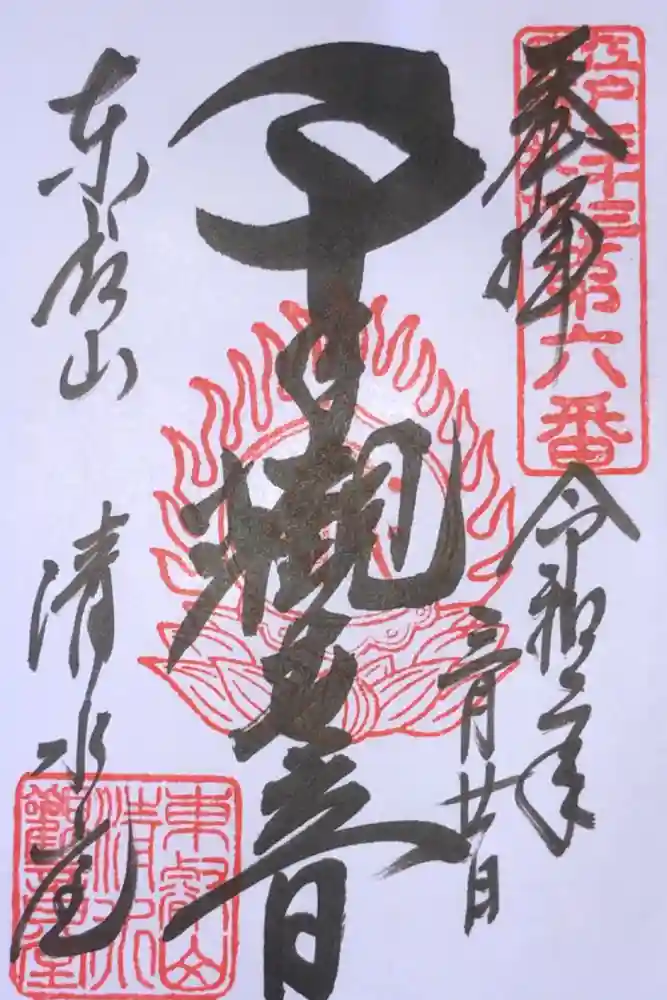 江戸三十三
第六番
奉拝
令和二年
三月廿日
千手観世音
東叡山
清水堂
東叡山
清水
觀音堂